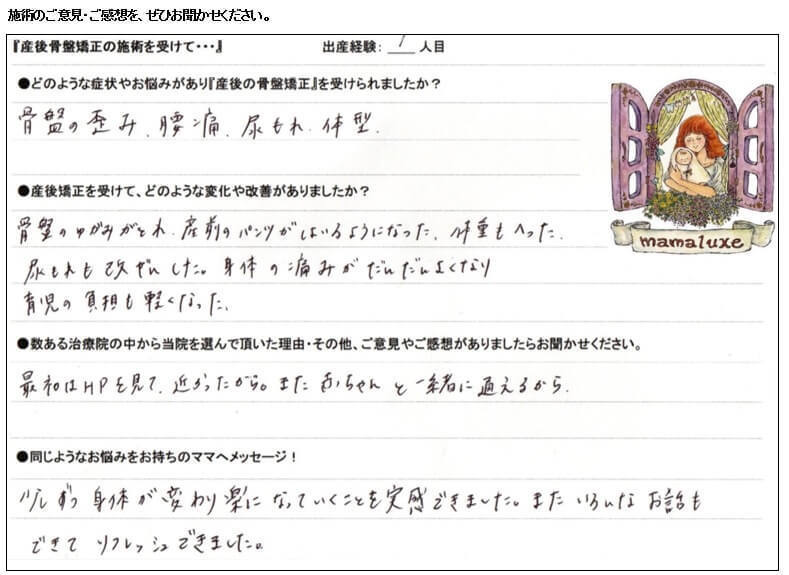 施術のご意見・ご感想を、ぜひお聞かせください。
『産後骨盤矯正の施術を受けて・・・』 出産経験: 1 人目
●どのような症状やお悩みがあり『産後の骨盤矯正』を受けられましたか？
骨盤の歪み、腰痛、尿もれ、体型、
●産後矯正を受けて、どのような変化や改善がありましたか？
骨盤のゆがみがとれ、産前のパンツがはいるようになった、体重もへった、
尿もれも改ぜんした。身体の痛みがだんだんよくなり
育児の負担も軽くなった、
mamaluxe
●数ある治療院の中から当院を選んで頂いた理由・その他、ご意見やご感想がありましたらお聞かせください。
最初はHPを見て、近かったから。また赤ちゃんと一緒に通えるから、
●同じようなお悩みをお持ちのママへメッセージ！
少しずつ身体が変わり楽になっていくことを実感できました。またいろいろなお話も
できてリフレッシュできました。